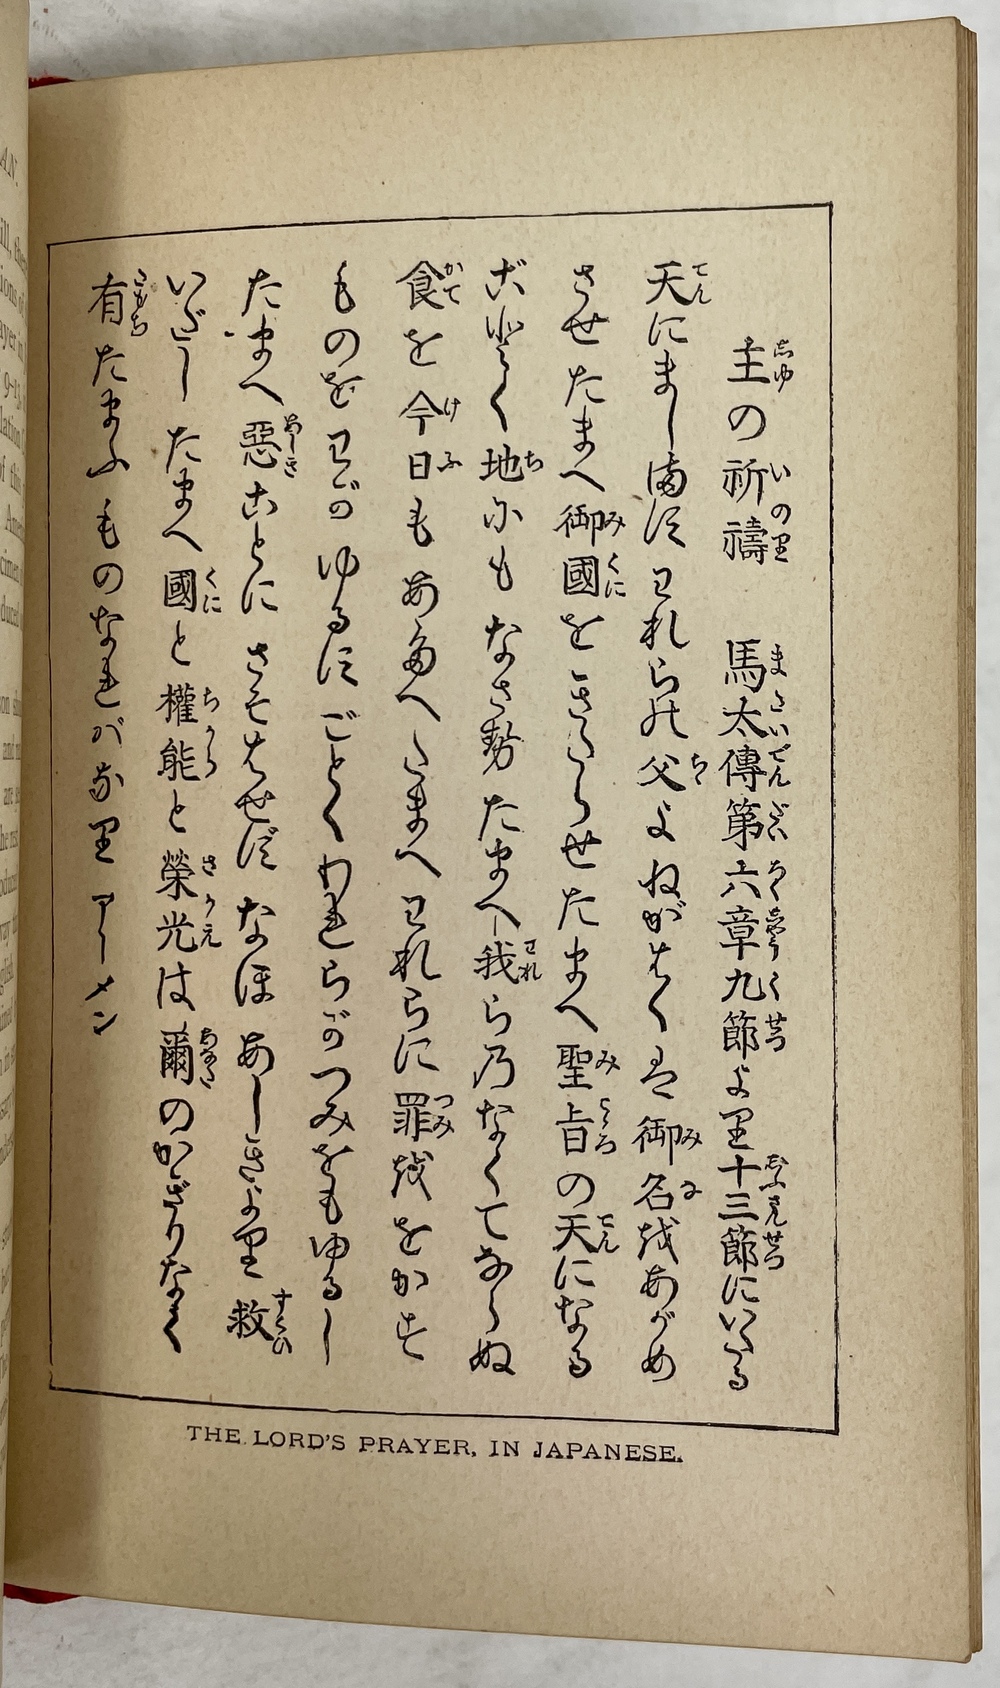 主の祈禱 馬太傳第六章九節より十三節にいたる
天にまします われらの父よ ねがはくは 御名をあがめ
させたまへ 御國をきたらせたまへ 聖旨の天になる
ごとく 地にも なさせたまへ 我らの なくてならぬ
食を 今日も あたへたまへ われらに 罪ををかす
ものを わが ゆるす ごとく われらがつみをもゆるし
たまへ 惡ことに さそはせず なほ あしきより 救
いだしたまへ 國と 權能と 榮光は 爾のかぎりなく
有たまふものなればなり アーメン
THE LORD'S PRAYER, IN JAPANESE.